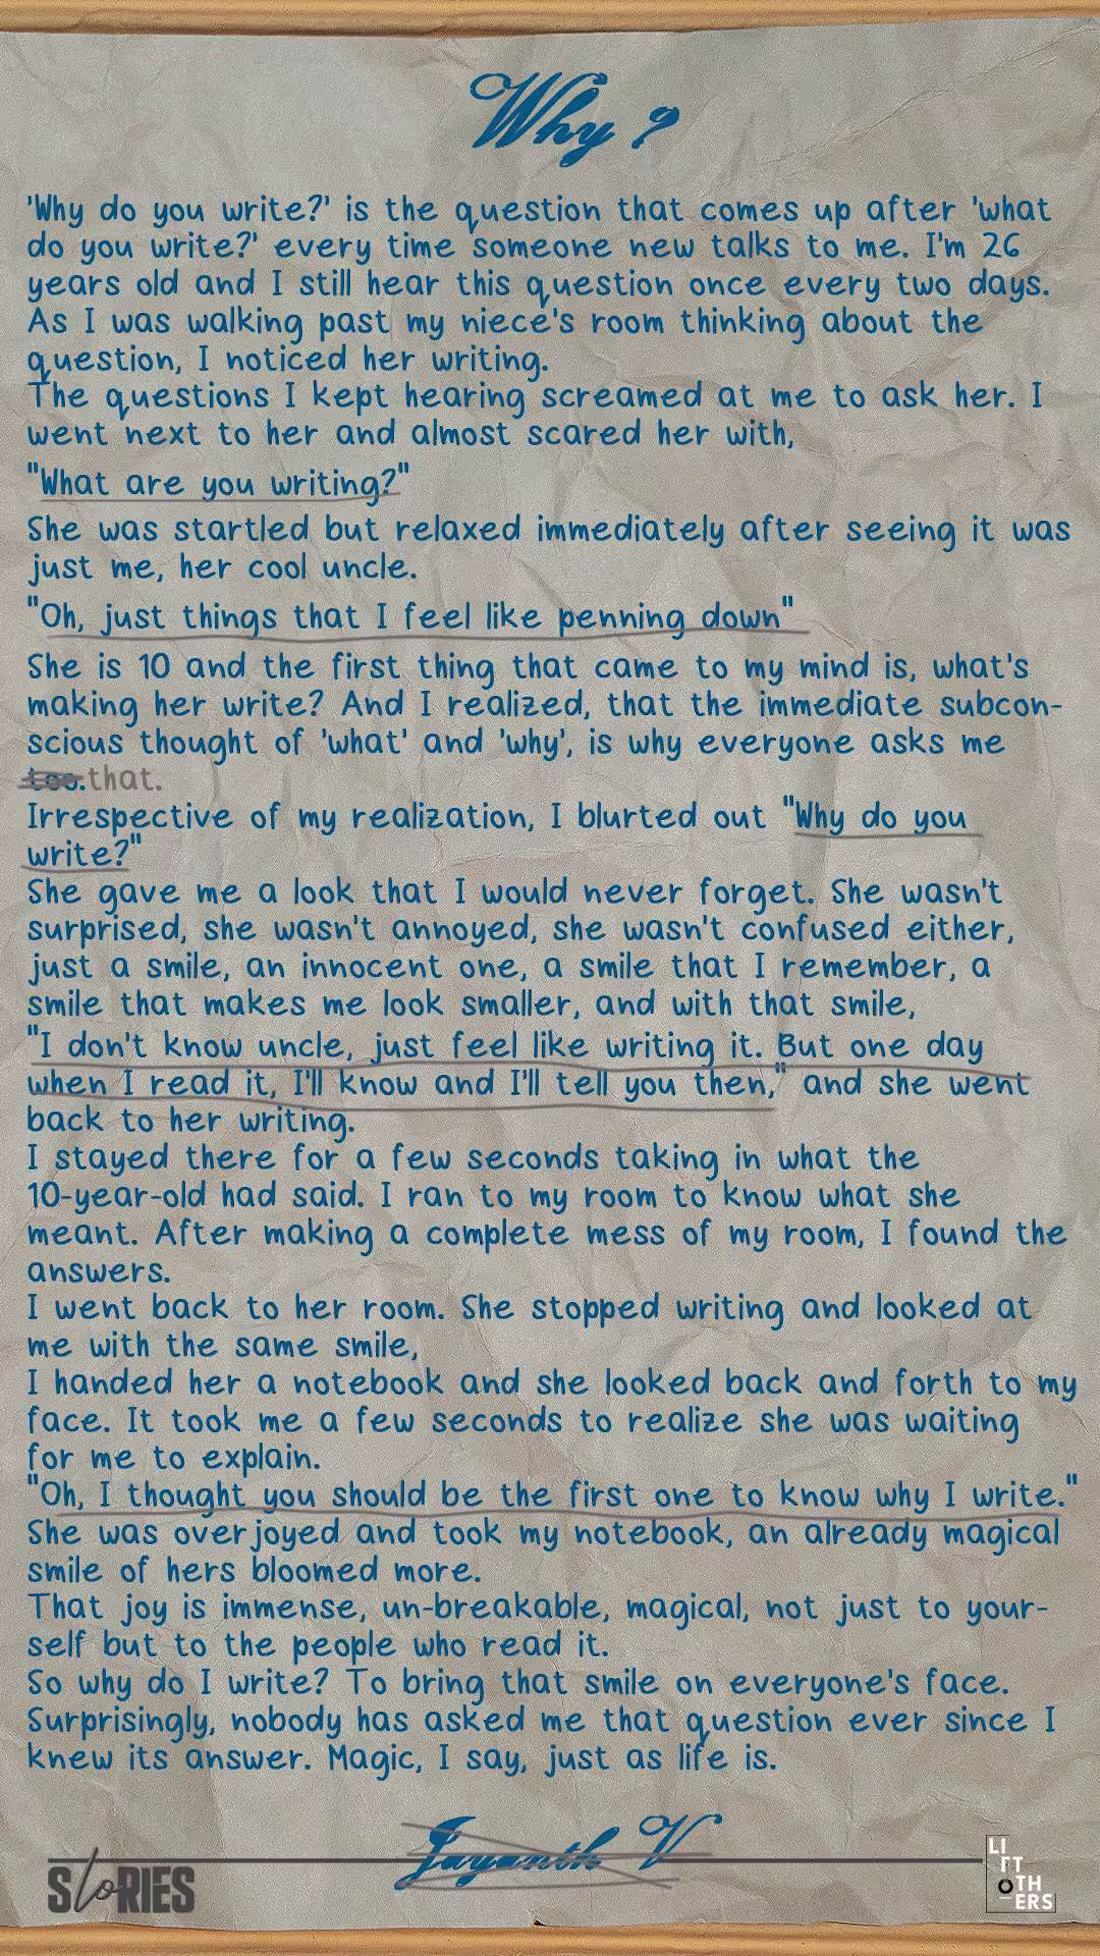 Why ?
'Why do you write?' is the question that comes up after 'what
do you write?' every time someone new talks to me. I'm 26
years old and I still hear this question once every two days.
As I was walking past my niece's room thinking about the
question, I noticed her writing.
The questions I kept hearing screamed at me to ask her. I
went next to her and almost scared her with,
"What are you writing?"
She was startled but relaxed immediately after seeing it was
just me, her cool uncle.
"Oh, just things that I feel like penning down"
She is 10 and the first thing that came to my mind is, what's
making her write? And I realized, that the immediate subcon-
scious thought of 'what' and 'why', is why everyone asks me
too. that.
Irrespective of my realization, I blurted out "Why do you
write?"
She gave me a look that I would never forget. She wasn't
surprised, she wasn't annoyed, she wasn't confused either,
just a smile, an innocent one, a smile that I remember, a
smile that makes me look smaller, and with that smile,
"I don't know uncle, just feel like writing it. But one day
when I read it, I'll know and I'll tell you then," and she went
back to her writing.
I stayed there for a few seconds taking in what the
10-year-old had said. I ran to my room to know what she
meant. After making a complete mess of my room, I found the
answers.
I went back to her room. She stopped writing and looked at
me with the same smile,
I handed her a notebook and she looked back and forth to my
face. It took me a few seconds to realize she was waiting
for me to explain.
"Oh, I thought you should be the first one to know why I write."
She was overjoyed and took my notebook, an already magical
smile of hers bloomed more.
That joy is immense, un-breakable, magical, not just to your-
self but to the people who read it.
So why do I write? To bring that smile on everyone's face.
Surprisingly, nobody has asked me that question ever since I
knew its answer. Magic, I say, just as life is.
Jayanth V
StoRIES
LI
FT
OTH
ERS